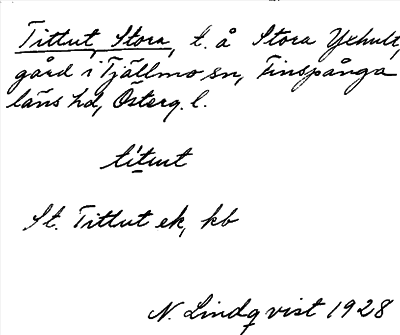 Tittut, Stora, t. å Stora Yxhult,
gård i Tjällmo sn, Finspånga
läns hd, Österg. l.
titut
St. Tittut ek, kb
N. Lindqvist 1928